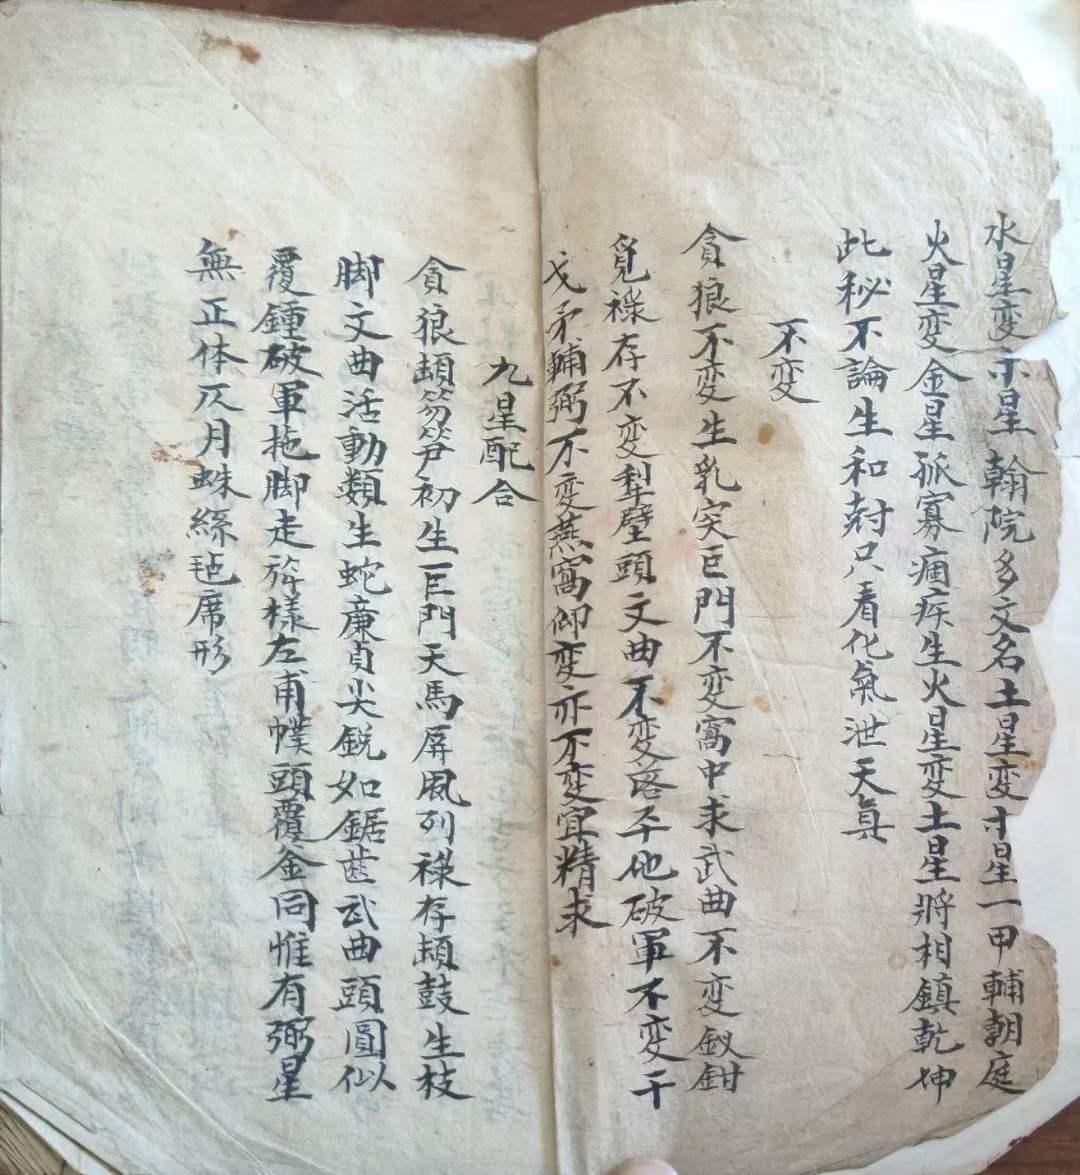 水星变木星翰院多文名土星变木星一甲輔朝庭
火星变金星孤寡痼疾生火星变土星將相鎮乾坤
此秘不論生和尅只看化氣泄天眞
不变
貪狼不变生乳突巨門不变窩中求武曲不变釵鉗
覓祿存不变犁壁頭文曲不变落平地破軍不变干
戈矛輔弼不变燕窩仰变亦不变宜精求
九星配合
貪狼頭笏笋初生巨門天馬屏風列祿存頭鼓生枝
脚文曲活動類生蛇廉貞尖鋭如鋸齒武曲頭圓似
覆鍾破軍拖脚走旂樣左甫幞頭覆金同惟有弼星
無正体仄月蛛絲毡席形